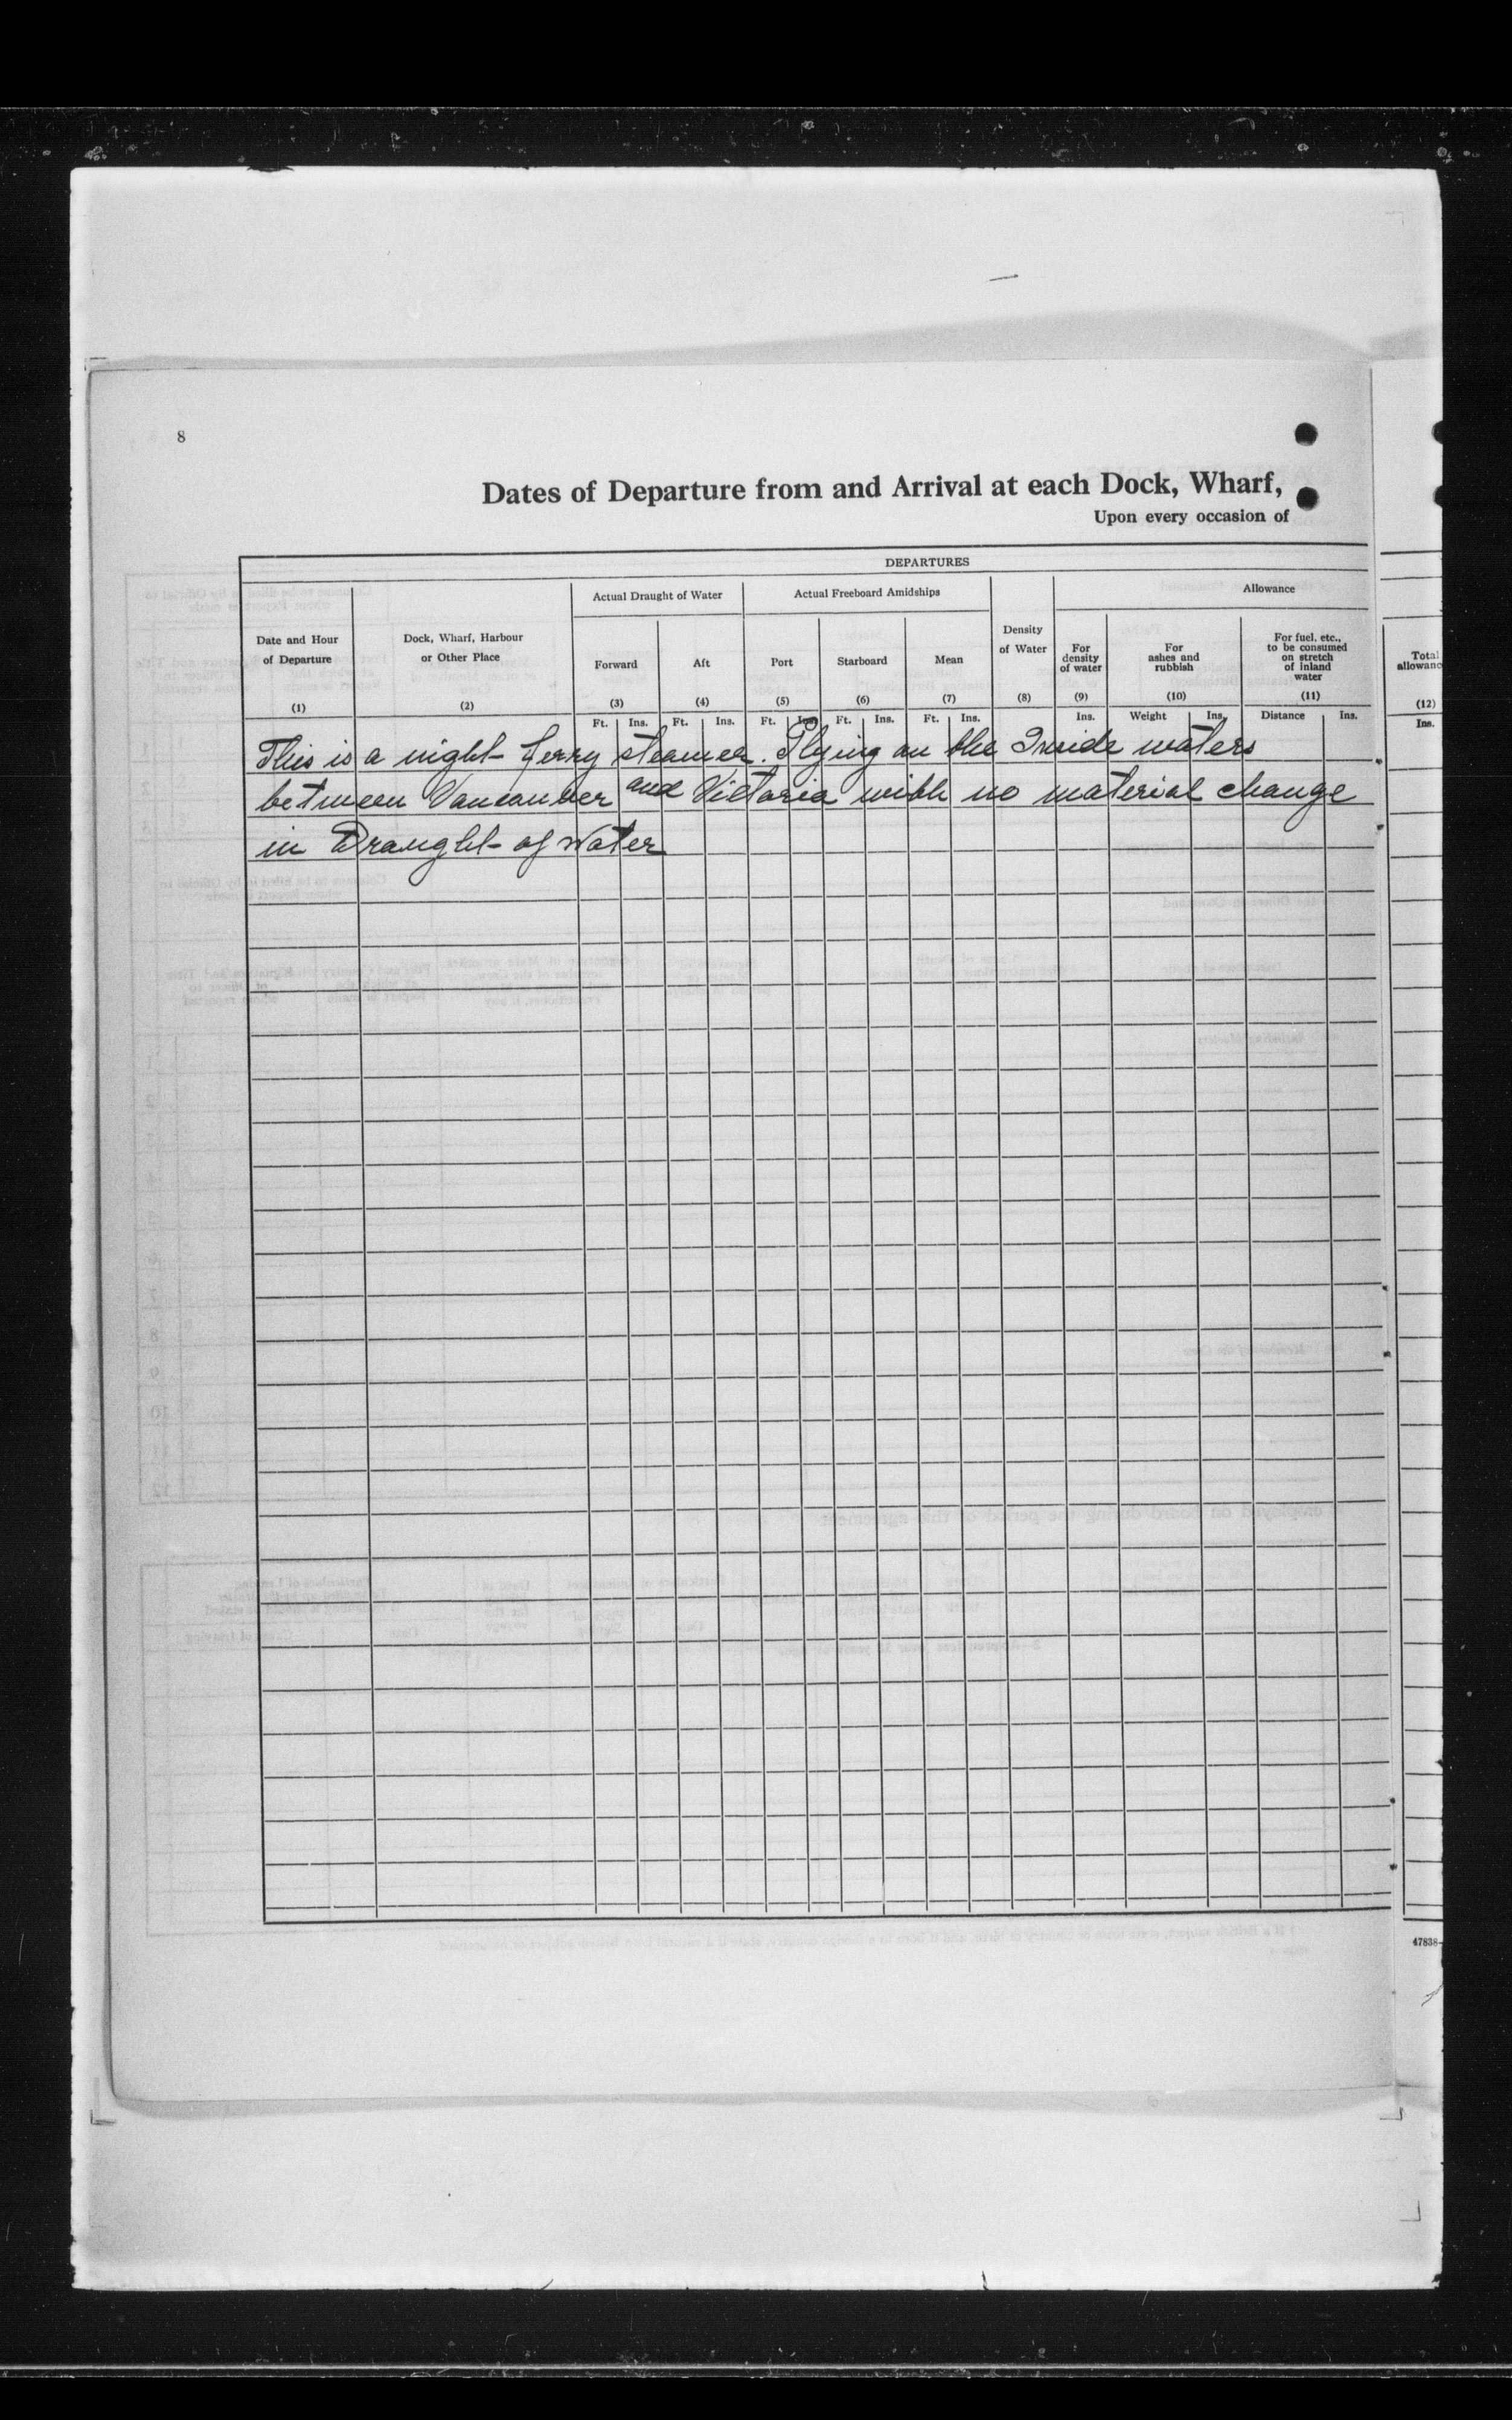 8
Dates of Departure from and Arrival at each Dock, Wharf,
Upon every occasion of
DEPARTURES
Actual Draught of Water
Actual Freeboard Amidships
Allowance
Date and Hour
of Departure
(1)
Dock, Wharf, Harbour
or Other Place
(2)
Forward
(3)
Aft
(4)
Port
(5)
Starboard
(6)
Mean
(7)
Density
of Water
(8)
For
density
of water
(9)
For
ashes and
rubbish
(10)
For fuel, etc.,
to be consumed
on stretch
of inland
water
(11)
Total
allowanc
(12)
Ft. Ins. Ft. Ins. Ft. Ins. Ft. Ins. Ft. Ins. Ins. Weight Ins. Distance Ins. Ins.
This is a night ferry steamer. Plying on the Inside waters
between Vancouver and Victoria with no material change
in Draught of Water
47838-